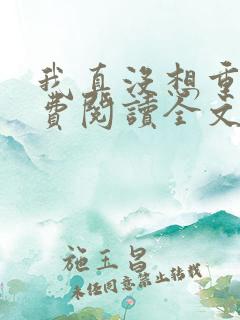 我真没想重
费阅读全文
施玉昌
未经同意禁止转载